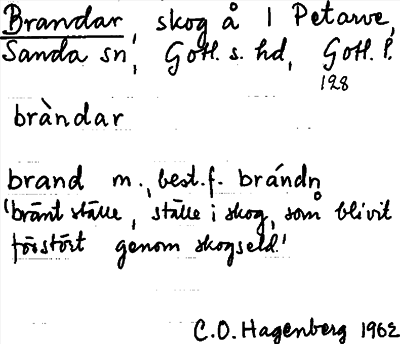 Brandar, skog å 1 Petarve,
Sanda sn, Gotl. s. hd, Gotl. l.
128
bràndar
brand m., best.f. brándn̥
'bränt ställe, ställe i skog, som blivit
förstört genom skogseld.'
C.O. Hagenberg 1962